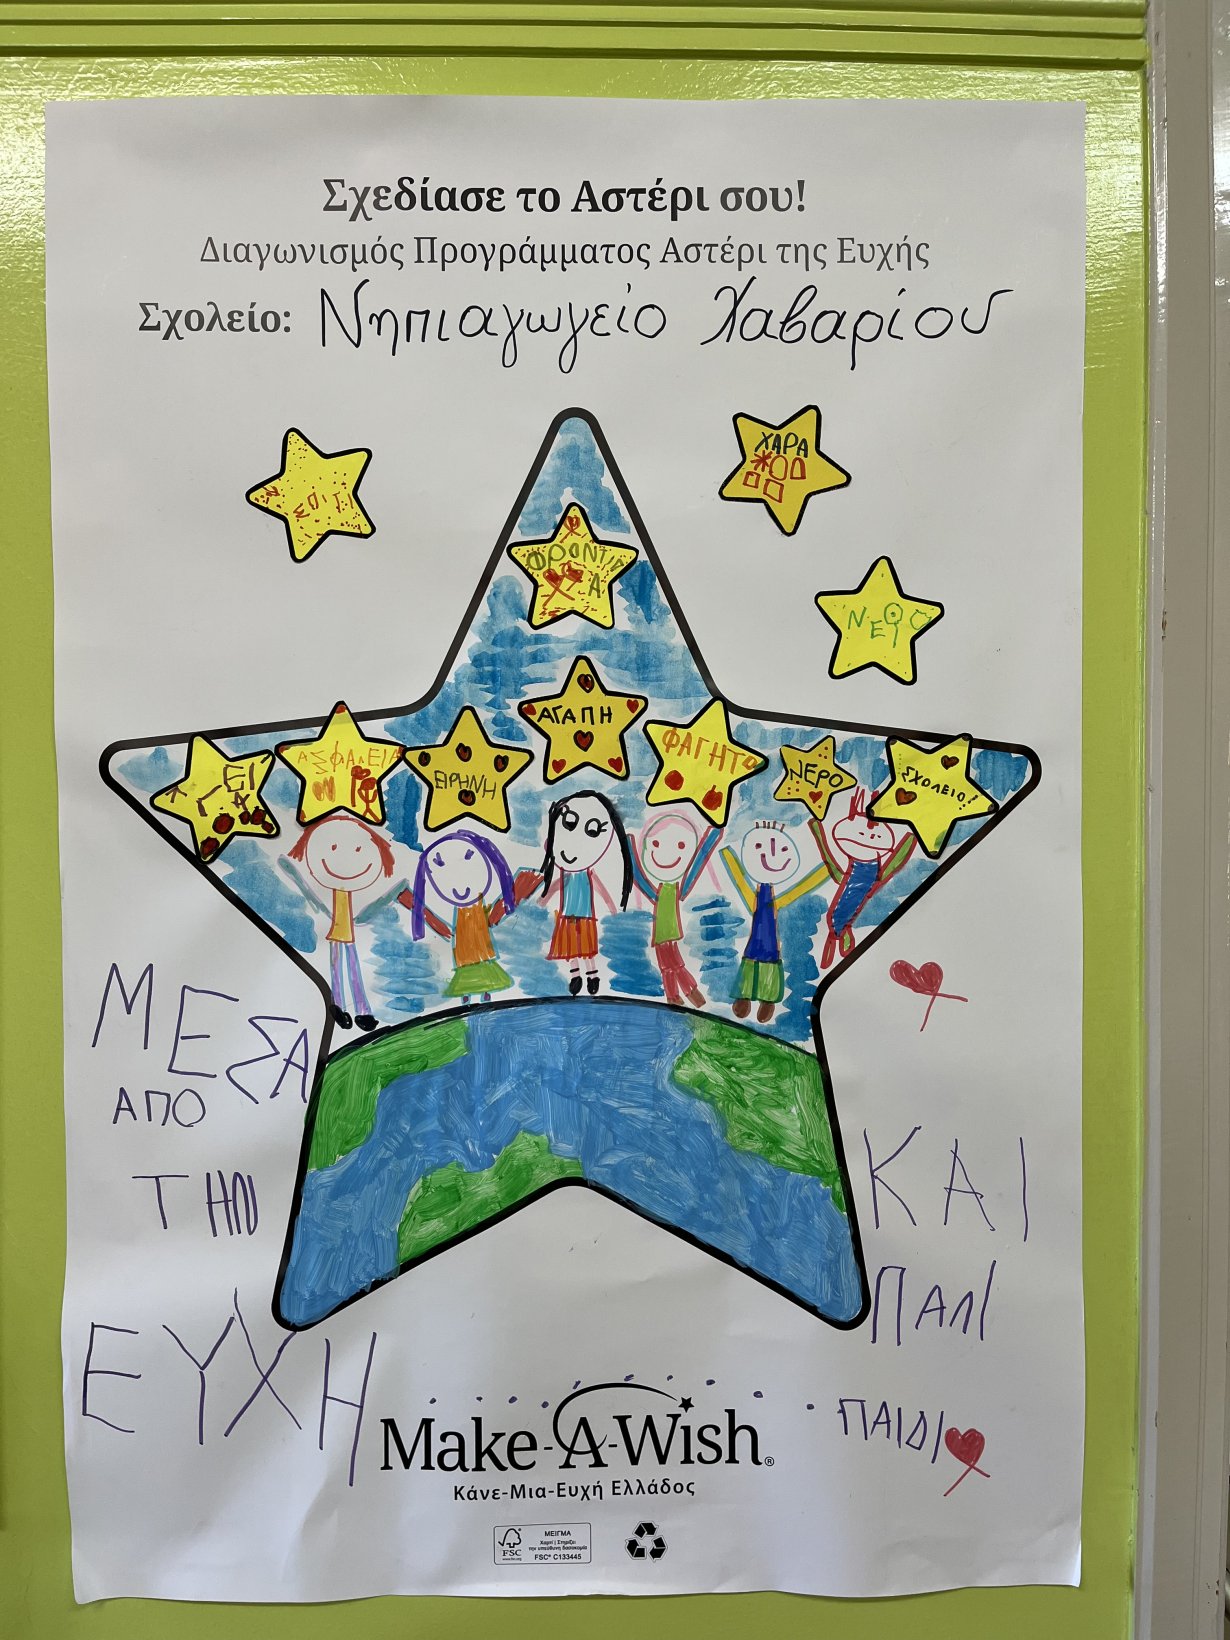 Σχεδίασε το Αστέρι σου!
Διαγωνισμός Προγράμματος Αστέρι της Ευχής
Σχολείο: Νηπιαγωγείο Χαβαρίου
ΣΠΙΤΙ
ΧΑΡΑ
ΦΡΟΝΤΙΔ
Α
ΝΕΡΟ
ΥΓΕΙ
Α
ΑΣΦΑΛΕΙΑ
ΕΙΡΗΝΗ
ΑΓΑΠΗ
ΦΑΓΗΤΟ
ΝΕΡΟ
ΣΧΟΛΕΙΟ!
ΜΕΣΑ
ΑΠΟ
ΤΗΝ
ΕΥΧΗ
ΚΑΙ
ΠΑΛΙ
ΠΑΙΔΙ
Make-A-Wish®
Κάνε-Μια-Ευχή Ελλάδος
FSC
ΜΕΙΓΜΑ
Χαρτί | Στηρίζει
την υπεύθυνη δασοκομία
FSC® C133445